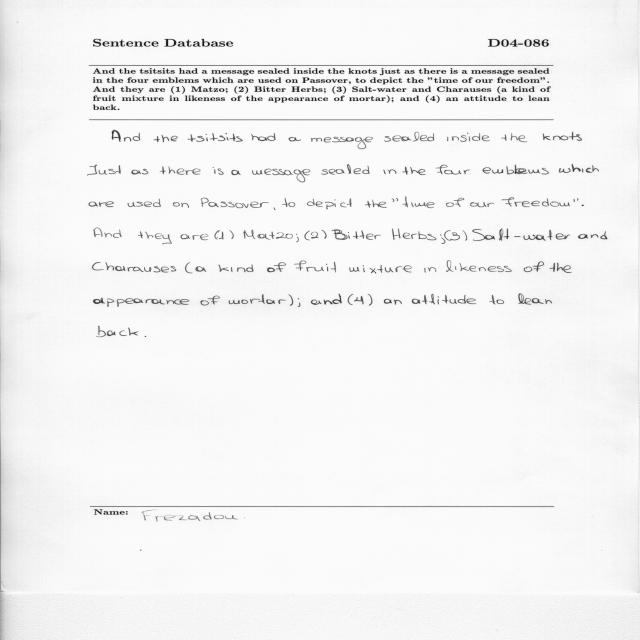 Sentence Database D04-086
And the tsitsits had a message sealed inside the knots just as there is a message sealed
in the four emblems which are used on Passover, to depict the "time of our freedom".
And they are (1) Matzo; (2) Bitter Herbs; (3) Salt-water and Charauses (a kind of
fruit mixture in likeness of the appearance of mortar); and (4) an attitude to lean
back.
And the tsitsits had a message sealed inside the knots
Just as there is a message sealed in the four emblems which
are used on Passover, to depict the "time of our freedom".
And they are (1) Matzo; (2) Bitter Herbs; (3) Salt-water and
Charauses (a kind of fruit mixture in likeness of the
appearance of mortar); and (4) an attitude to lean
back.
Name: Frezadou